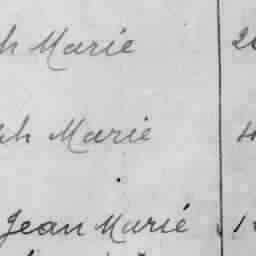 h Marie 2
ph Marie 4
Jean Marié 1